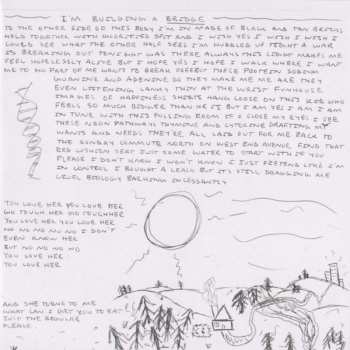 I'M BUILDING A BRIDGE
TO THE OTHER SIDE OF THIS BODY I'M IN MADE OF BLACK AND TAN BRICKS
HELD TOGETHER WITH UNDIGESTED DUST AND I WISH YES I WISH I WISH I
COULD SEE WHAT THE OTHER HALF SEES I'M HUDDLED UP TIGHT A WAR
IS BREAKING OUT TONIGHT WAS THERE ALWAYS THIS LIGHT MAKES ME
FEEL HOPELESSLY ALIVE BUT I HOPE YES I HOPE I WALK WHERE I WANT
ME TO NO PART OF ME WANT TO BREAK DEFEAT THESE PROTEIN
GUANINE AND ADENINE DO THEY MAKE ME ME ARE THEY
EVEN LISTENING LANKY THIN AT THE WRIST FUNHOUSE
IMAGES OF HAPPINESS SHIRTS HANG LOOSE ON THIS KID WHO
FEELS SO MUCH BIGGER THAN HE IS BUT I AM YES I AM I AM
IN TUNE WITH THIS PULLING ROOM IF I CLOSE MY EYES I SEE
THESE NEON PATHWAYS THYMINE AND CYTOSINE DRAFTING MY
WANTS AND NEEDS THEY'RE ALL LAID OUT FOR ME BACK TO
THE SUNDAY COMMUTE NORTH ON WEST END AVENUE FIND THAT
RED CUSHION SEAT JUST SOME WATER TO START WITH IF YOU
PLEASE I DON'T KNOW I WON'T KNOW I JUST PRETEND LIKE I'M
IN CONTROL I BOUGHT A LEASH BUT IT'S STILL DRAGGING ME
CRUEL BIOLOGY BARKING INCESSANTLY
YOU LOVE HER YOU LOVE HER
GO TOUCH HER GO TOUCH HER
YOU LOVE HER YOU LOVE HER
NO NO NO NO NO I DON'T
EVEN KNOW HER
BUT NO NO NO NO
YOU LOVE HER
YOU LOVE HER
AND SHE TURNS TO ME
WHAT CAN I GET YOU TO EAT
JUST THE REGULAR
PLEASE